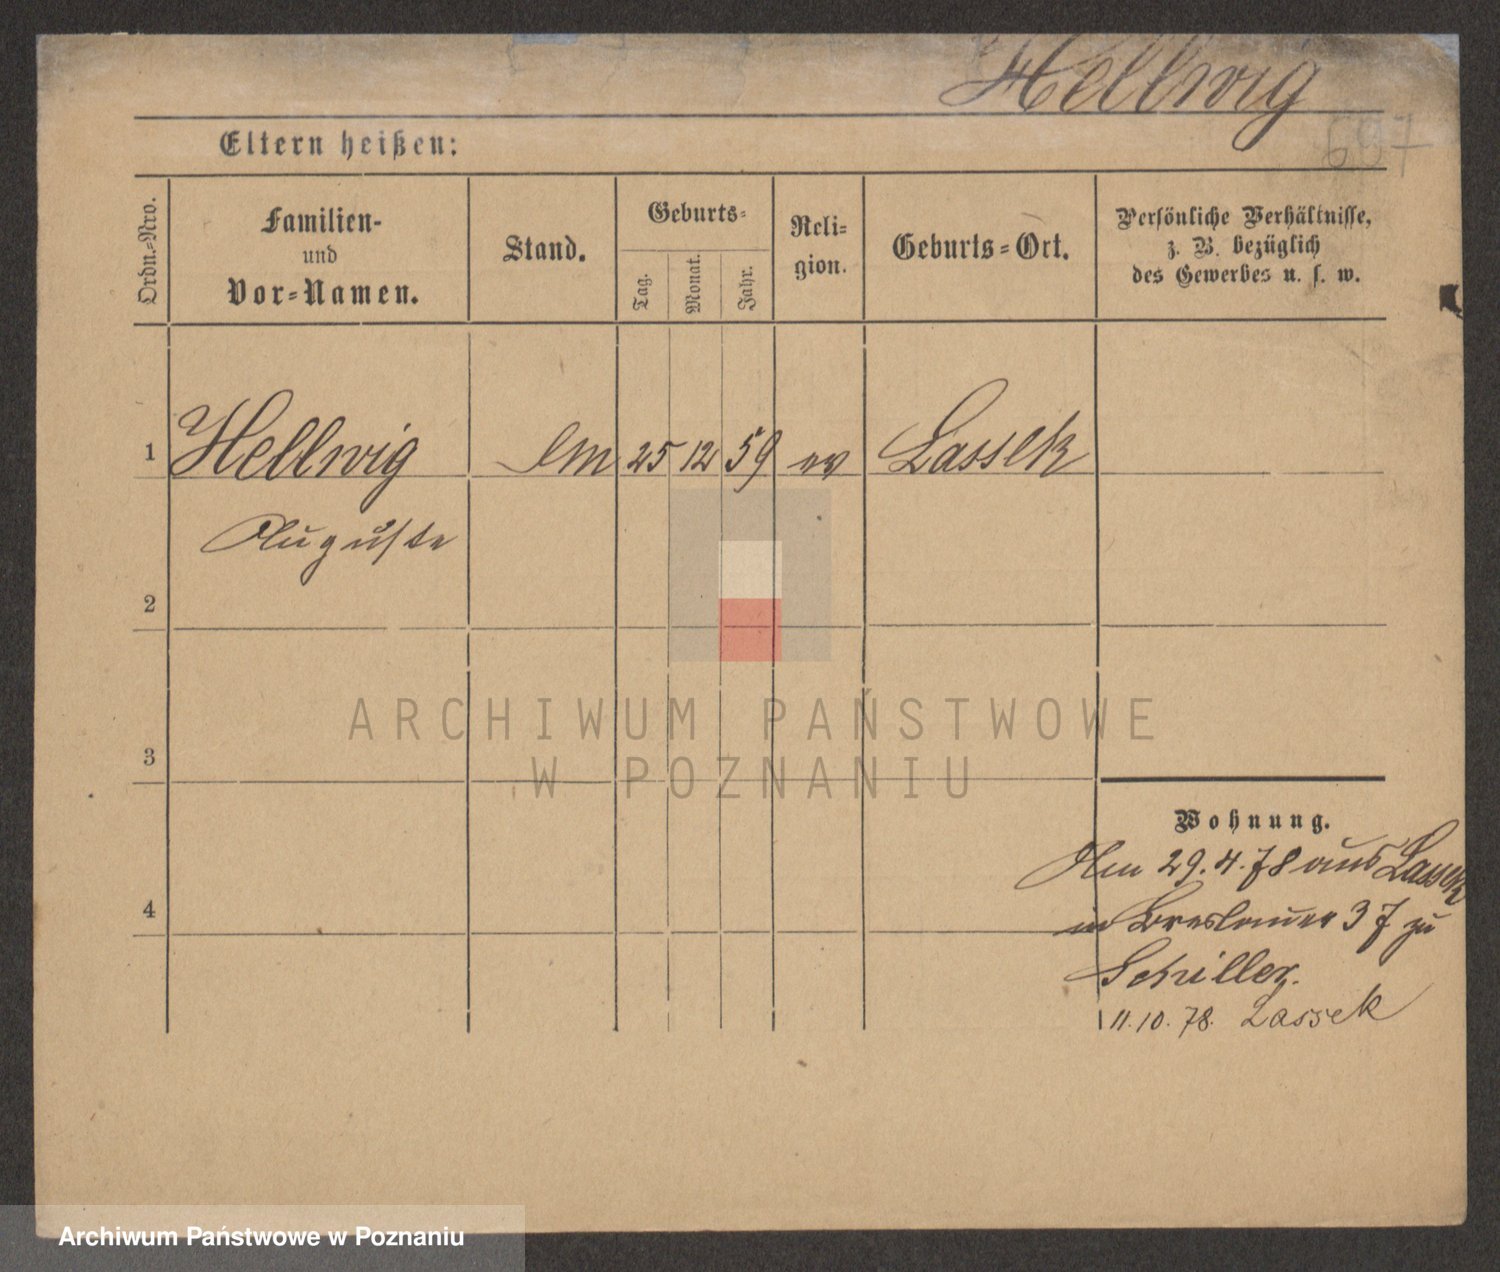 Hellwig
697
Eltern heißen:
Ordn.=Nro.
Familien-
und
Vor=Namen.
Stand.
Geburts=
Tag.
Monat.
Jahr.
Reli=
gion.
Geburts=Ort.
Persönliche Verhältnisse,
z. B. bezüglich
des Gewerbes u. s. w.
1 Hellwig 25 12 59 ev Lassek
Auguste
2
3
4
ARCHIWUM PAŃSTWOWE
W POZNANIU
Wohnung.
Am 29.4.78 aus Lassek
in Breslauer 37 zu
Schiller.
11.10.78. Lassek
Archiwum Państwowe w Poznaniu